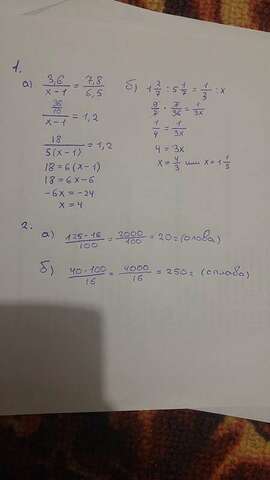 1.
а) 3,6/x-1 = 7,8/6,5
36/10/x-1 = 1,2
18/5(x-1) = 1,2
18=6(x-1)
18=6x-6
-6x=-24
x=4
б) 1 2/7 : 5 1/7 = 1/3 : x
9/7 · 7/36 = 1/3x
1/4 = 1/3x
4=3x
x = 4/3 или x = 1 1/3
2.
а) 125·16/100 = 2000/100 = 20г (олова)
б) 40·100/16 = 4000/16 = 250г (сплава)